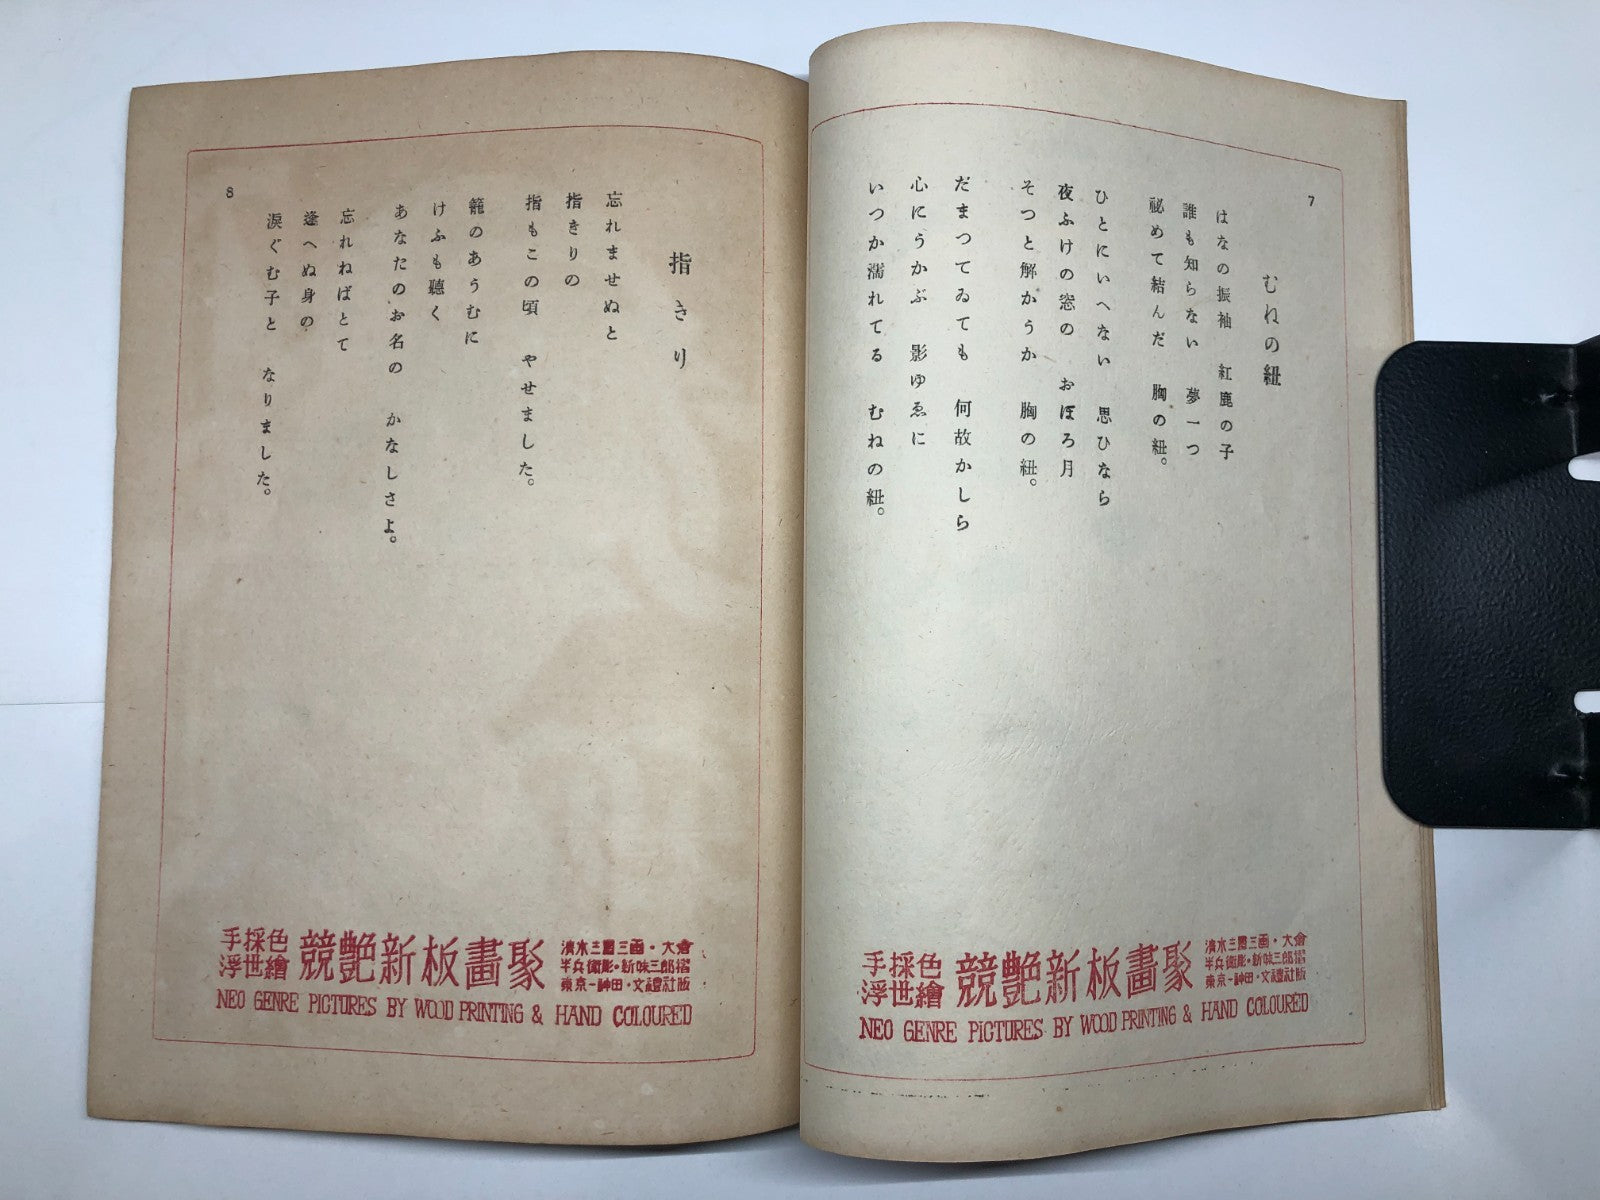 7
むねの紐
はなの振袖　紅鹿の子
誰も知らない　夢一つ
祕めて結んだ　胸の紐。
ひとにいへない　思ひなら
夜ふけの窓の　おぼろ月
そつと解かうか　胸の紐。
だまつてゐても　何故かしら
心にうかぶ　影ゆゑに
いつか濡れてる　むねの紐。
手採色
浮世繪
競艶新板畫聚
清水三重三画・大倉
半兵衛彫・新味三郎摺
東京―神田・文禮社版
NEO GENRE PICTURES BY WOOD PRINTING & HAND COLOURED
8
指きり
忘れませぬと
指きりの
指もこの頃　やせました。
籠のあうむに
けふも聽く
あなたのお名の　かなしさよ。
忘れねばとて
逢へぬ身の
淚ぐむ子と　なりました。
手採色
浮世繪
競艶新板畫聚
清水三重三画・大倉
半兵衛彫・新味三郎摺
東京―神田・文禮社版
NEO GENRE PICTURES BY WOOD PRINTING & HAND COLOURED